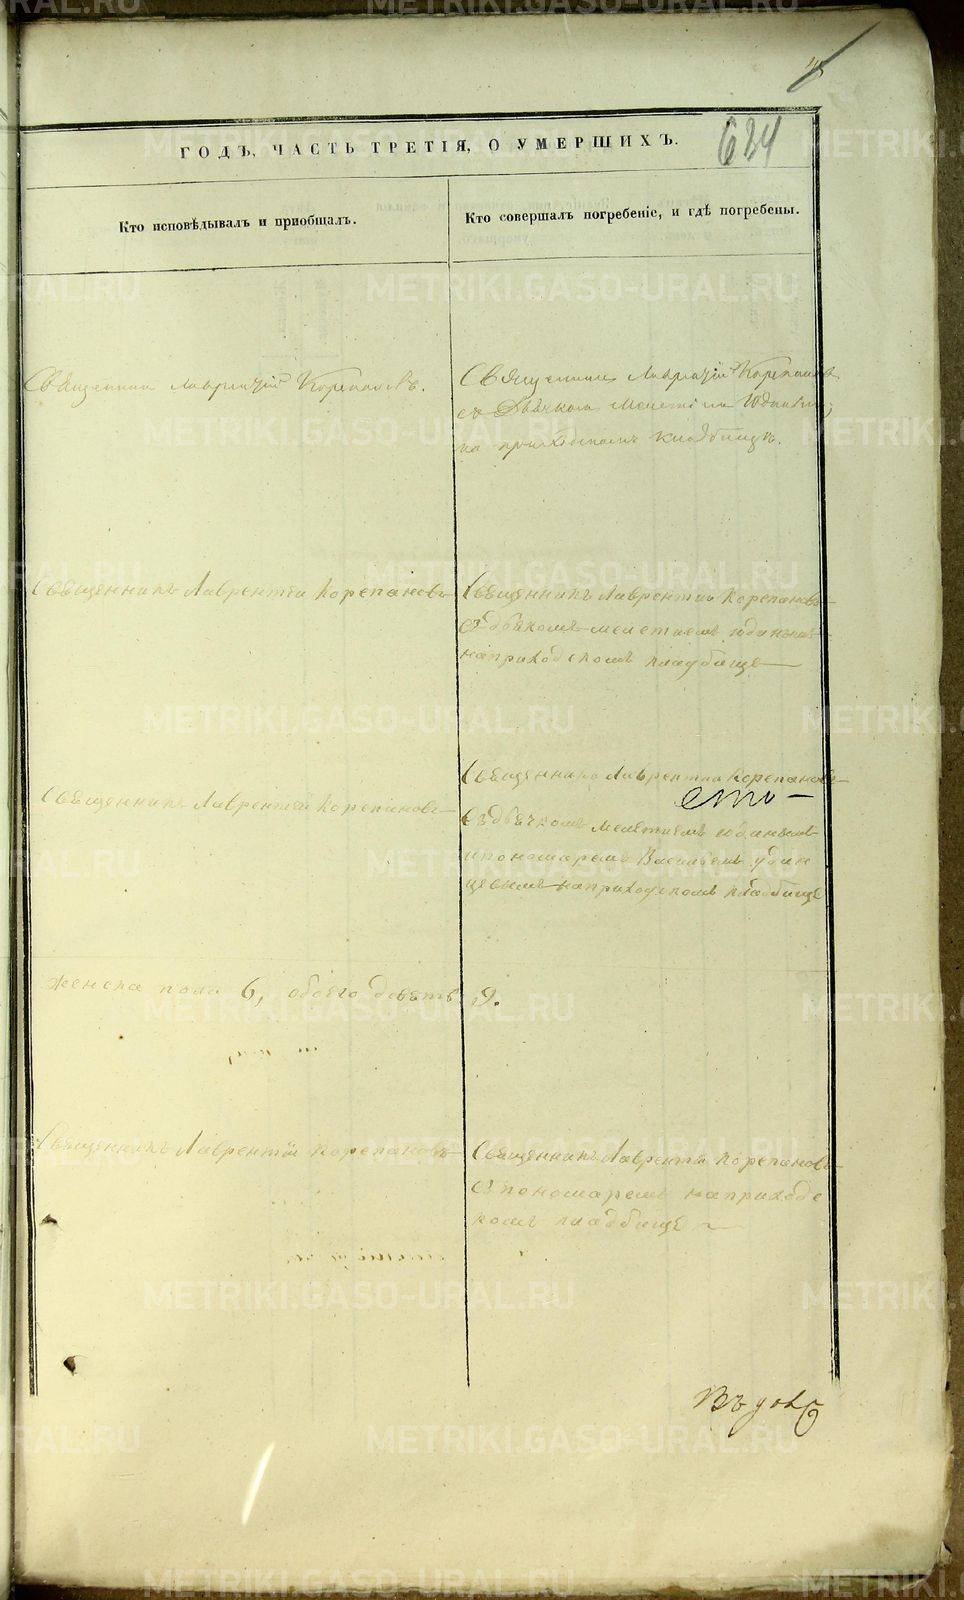 634
ГОДЪ, ЧАСТЬ ТРЕТІЯ, О УМЕРШИХЪ.
Кто исповѣдывалъ и пріобщалъ.
Кто совершалъ погребеніе, и гдѣ погребены.
Священник Лаврентій Корепановъ.
Священник Лаврентій Корепановъ
съ Дьячкомъ
на приходскомъ кладбищѣ.
Священникъ Лаврентій Корепановъ
Священникъ Лаврентій Корепановъ
з дьячкомъ мелетиемъ
наприходскомъ кладбище
Священникъ Лаврентей Корепановъ
Священника Лаврентиа Корепановъ
ето
Сздьячкомъ Мелетиемъ
ипономаремъ Васильемъ удин
цевымъ наприходскомъ кладбище
женска пола 6, обоего девять 9.
Священникъ Лаврентій Корепановъ
Священникъ Лаврентій Корепановъ
Съ пономаремъ наприходс
комъ кладбище
METRIKI.GASO-URAL.RU